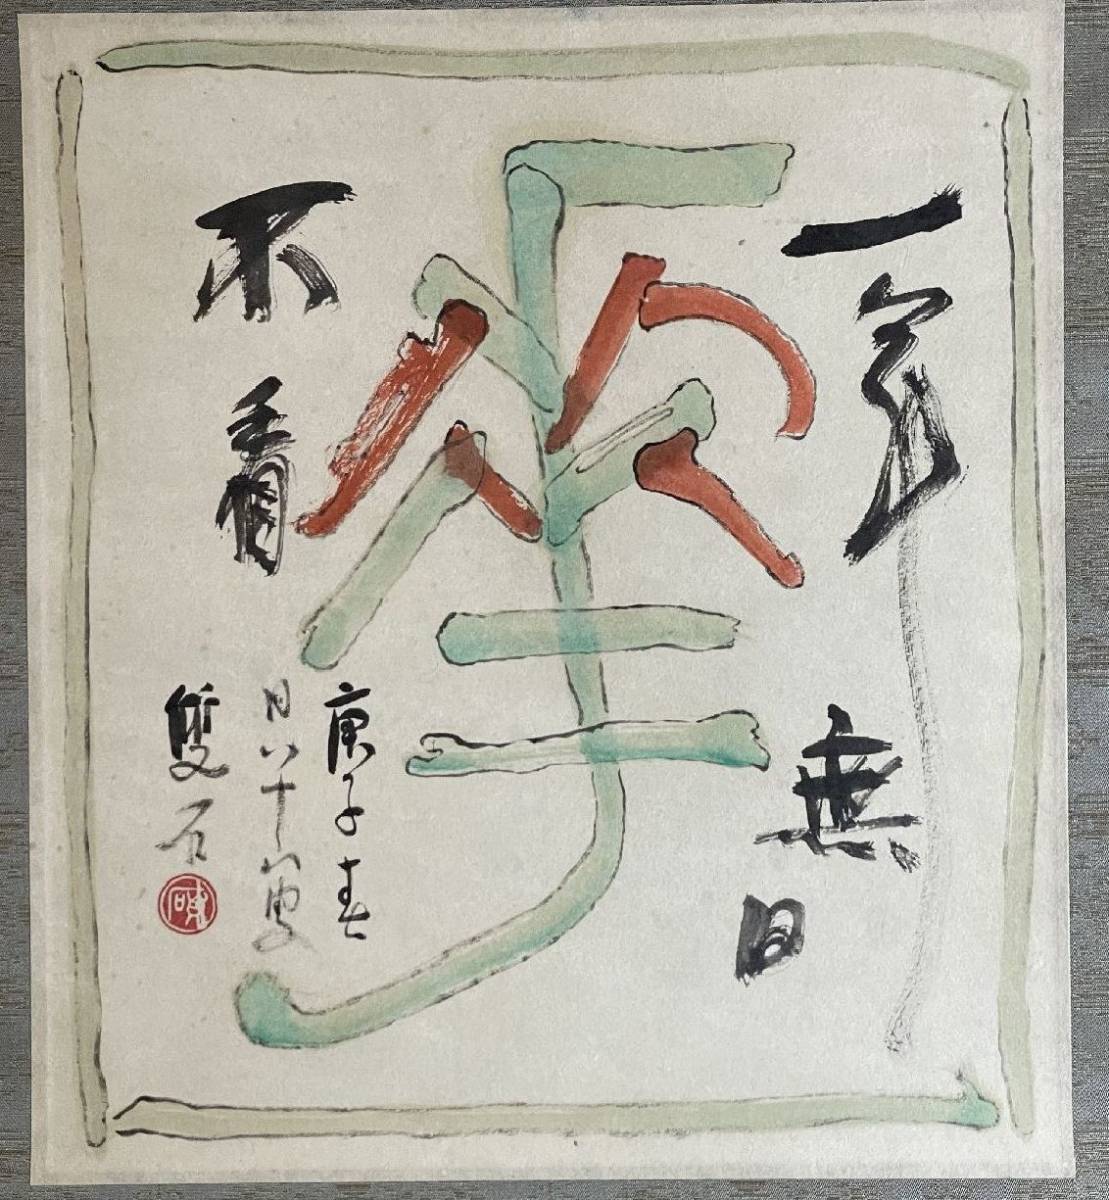 一年無日
不看
華
庚子春
日八十八叟
雙石